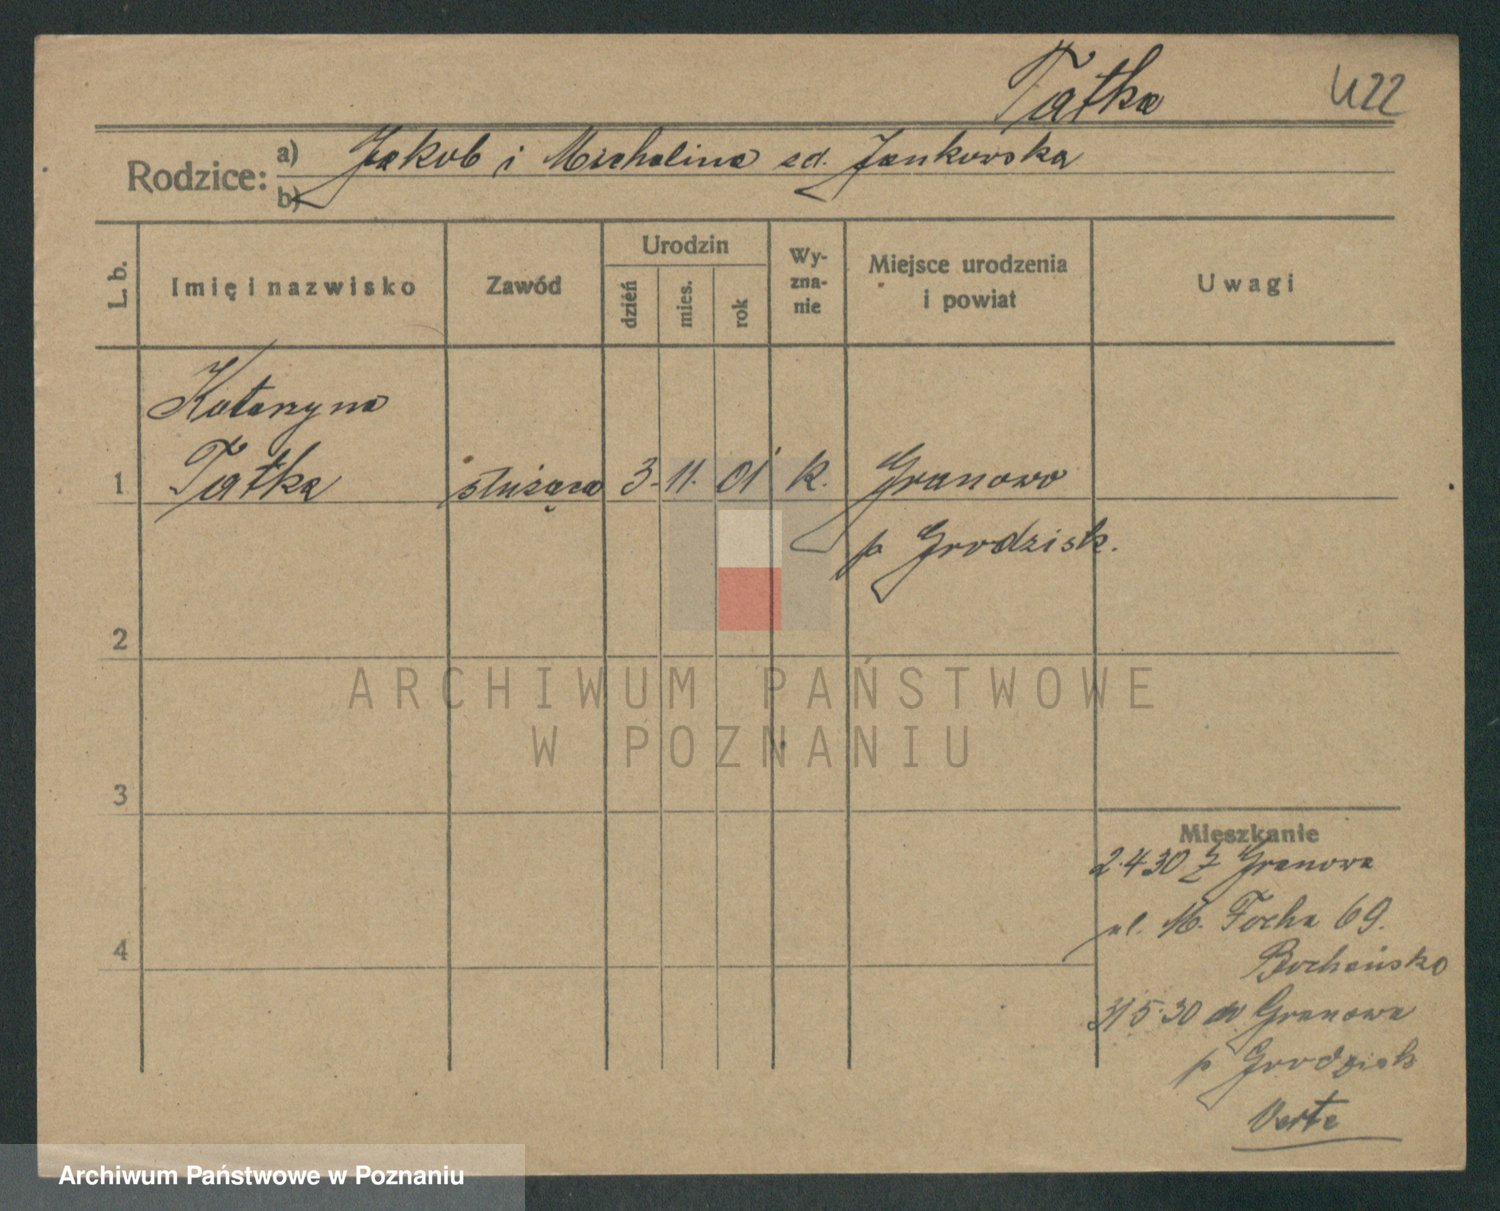 Tatka 422
Rodzice: a) Jakob i Michalina zd. Jankowska
b)
L. b. Imię i nazwisko Zawód Urodzin dzień mies. rok Wyznanie Miejsce urodzenia i powiat Uwagi
Katarzyna
1 Tatka służąca 3. 11. 01 k. Granowo
p Grodzisk.
2
3
4
Mieszkanie
2.4.30 z Granowa
ul. M. Focha 69.
31 5.30 do Granowa
p Grodzisk
Verte
ARCHIWUM PAŃSTWOWE
W POZNANIU
Archiwum Państwowe w Poznaniu